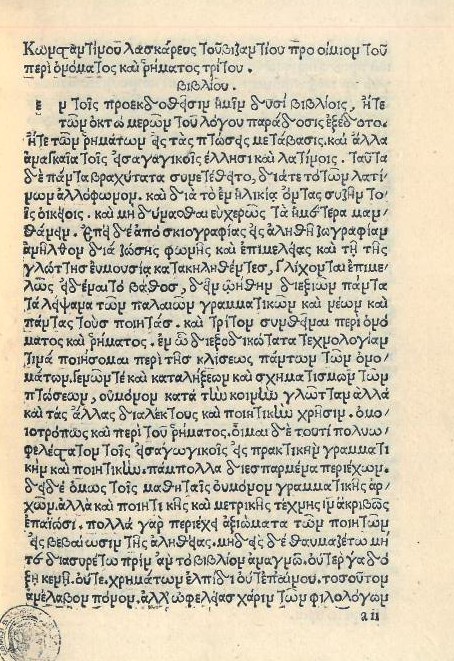 Κωνσταντίνου λασκάρεως τοῦ βιζαντίου προοίμιον τοῦ
περὶ ὀνόματος καὶ ῥήματος τρίτου.
βιβλίου.
Ἐν τοῖς προεκδοθεῖσιν ἡμῖν δυσὶ βιβλίοις, ἥτε
τῶν ὀκτὼ μερῶν τοῦ λόγου παράδοσις ἐξέδοτο.
ἥτε τῶν ῥημάτων εἰς τὰς πτώσεις μετάβασις. καὶ ἄλλα
ἀναγκαῖα τοῖς εἰσαγωγικοῖς ἕλλησι καὶ λατίνοις. ταῦτα
δὲ πάντα βραχύτατα συνετέθητο, διά τε τὸ τῶν λατί
νων ἀλλόφωνον. καὶ διὰ τὸ ἐν ἡλικίᾳ ὄντας συζῆν τοῖς
οἰκείοις. καὶ μὴ δύνασθαι εὐχερῶς τὰ ἡμέτερα μαν
θάνειν. ἐπεὶ δὲ ἀπὸ σκιογραφίας εἰς ἀληθῆ ζωγραφίαν
ἀνῆλθον διὰ ζώσης φωνῆς καὶ ἐπιμελείας καὶ τῇ τῆς
γλώττης εὐμουσίᾳ κατακηληθέντες, γλίχονται ἐπιμε
λῶς εἰδέναι τὸ βάθος, δεῖν ᾠήθην διεξιὼν πάντα
τὰ λείψανα τῶν παλαιῶν γραμματικῶν καὶ νέων καὶ
πάντας τοὺς ποιητάς. καὶ τρίτον συνθεῖναι περὶ ὀνό
ματος καὶ ῥήματος. ἐν ᾧ διεξοδικωτάτα τεχνολογίαν
τινὰ ποιήσομαι περὶ τῆς κλίσεως πάντων τῶν ὀνο
μάτων. γενῶν τὲ καὶ καταλήξεων καὶ σχηματισμῶν τῶν
πτώσεων, οὐ μόνον κατὰ τὴν κοινὴν γλῶτταν ἀλλὰ
καὶ τὰς ἄλλας διαλέκτους καὶ ποιητικὴν χρῆσιν. ὁμο
ιοτρόπως καὶ περὶ τοῦ ῥήματος. οἶμαι δὲ τουτὶ πολυω
φελέστατον τοῖς εἰσαγωγικοῖς εἰς πρακτικὴν γραμματι
κὴν καὶ ποιητικήν. πάμπολλα διεσπαρμένα περιέχον.
δεῖ δὲ ὅμως τοῖς μαθηταῖς οὐ μόνον γραμματικῆς ἀρ
χῶν. ἀλλὰ καὶ ποιητικῆς καὶ μετρικῆς τέχνης ἵν ἀκριβῶς
ἐπαΐωσι. πολλὰ γὰρ περιέχει ἀξιώματα τῶν ποιητῶν
εἰς βεβαίωσιν τῆς ἀληθείας. μηδεὶς δὲ θαυμαζέτω μή
τε διασυρέτω πρὶν ἂν τὸ βιβλίον ἀναγνῷ. οὔτε γὰρ δό
ξῃ κενῇ. οὔτε. χρημάτων ἐλπίδι οὔτ ἐπαίνου. τοσοῦτον
ἀνέλαβον πόνον. ἀλλ ὠφελείας χάριν τῶν φιλολόγων
a ii